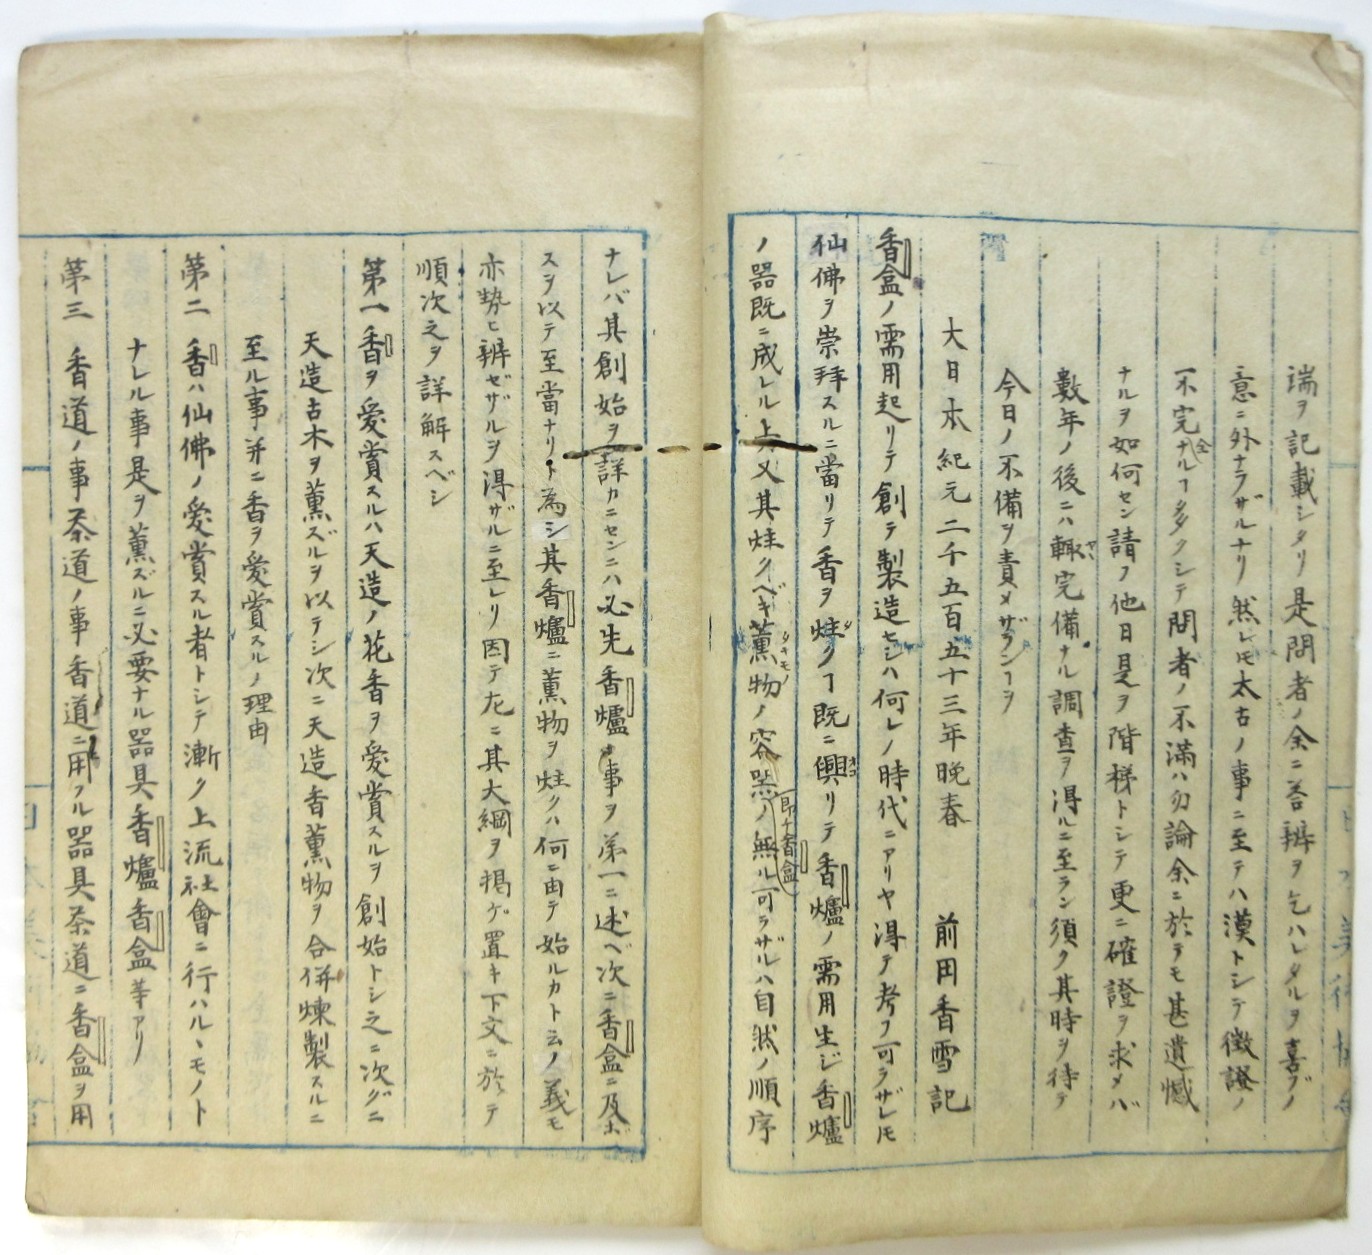 端ヲ記載シタリ是問者ノ余ニ荅辨ヲ乞ハレタルヲ喜ブノ
意ニ外ナラザルナリ然レ𪜈太古ノ事ニ至テハ漠トシテ徴證ノ
不完全ナルヿ多クシテ問者ノ不滿ハ勿論余ニ於テモ甚遺憾
ナルヲ如何セン請フ他日是ヲ階梯トシテ更ニ確證ヲ求メバ
數年ノ後ニハ輙完備ナル調査ヲ得ルニ至ラン須ク其時ヲ待テ
今日ノ不備ヲ責メザランヿヲ
大日本紀元二千五百五十三年晩春 前田香雪記
香盒ノ需用起リテ創テ製造セシハ何レノ時代ニアリヤ得テ考フ可ラザレ𪜈
仙佛ヲ崇拜スルニ當リテ香ヲ炷クヿ既ニ興リテ香爐ノ需用生ジ香爐
ノ器既ニ成レル上ハ又其炷クベキ薫物ノ容器即チ香盒ノ無ル可ラザルハ自然ノ順序
ナレバ其創始ヲ詳カニセンニハ必先香爐ノ事ヲ第一ニ述ベ次ニ香盒ニ及ボ
スヲ以テ至當ナリト為シ其香爐ニ薫物ヲ炷クハ何ニ由テ始ルカト云ノ義モ
亦勢ヒ辨ゼザルヲ得ザルニ至レリ因テ左ニ其大綱ヲ掲ゲ置キ下文ニ於テ
順次之ヲ詳解スベシ
第一 香ヲ愛賞スルハ天造ノ花香ヲ愛賞スルヲ創始トシ之ニ次グニ
天造古木ヲ薫ズルヲ以テシ次ニ天造香薫物ヲ合併煉製スルニ
至ル事并ニ香ヲ愛賞スルノ理由
第二 香ハ仙佛ノ愛賞スル者トシテ漸ク上流社會ニ行ハルヽモノト
ナレル事是ヲ薫ズルニ必要ナル器具香爐香盒等アリ
第三 香道ノ事茶道ノ事香道ニ用フル器具茶道ニ香盒ヲ用